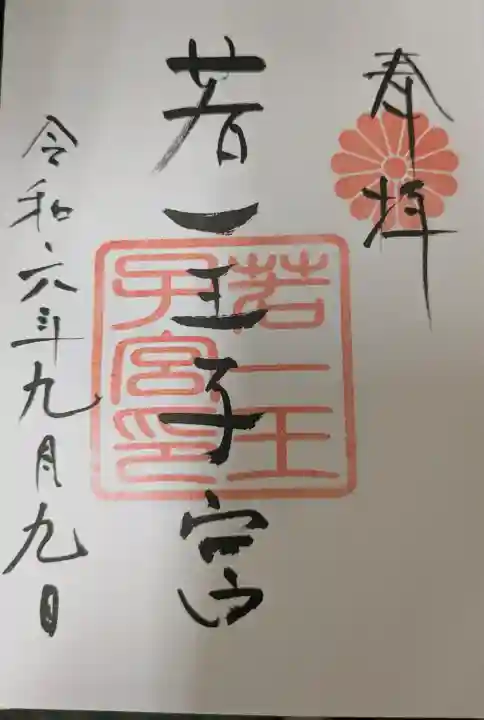 奉拝
若一王子宮
若一王
子宮印
令和六年九月九日